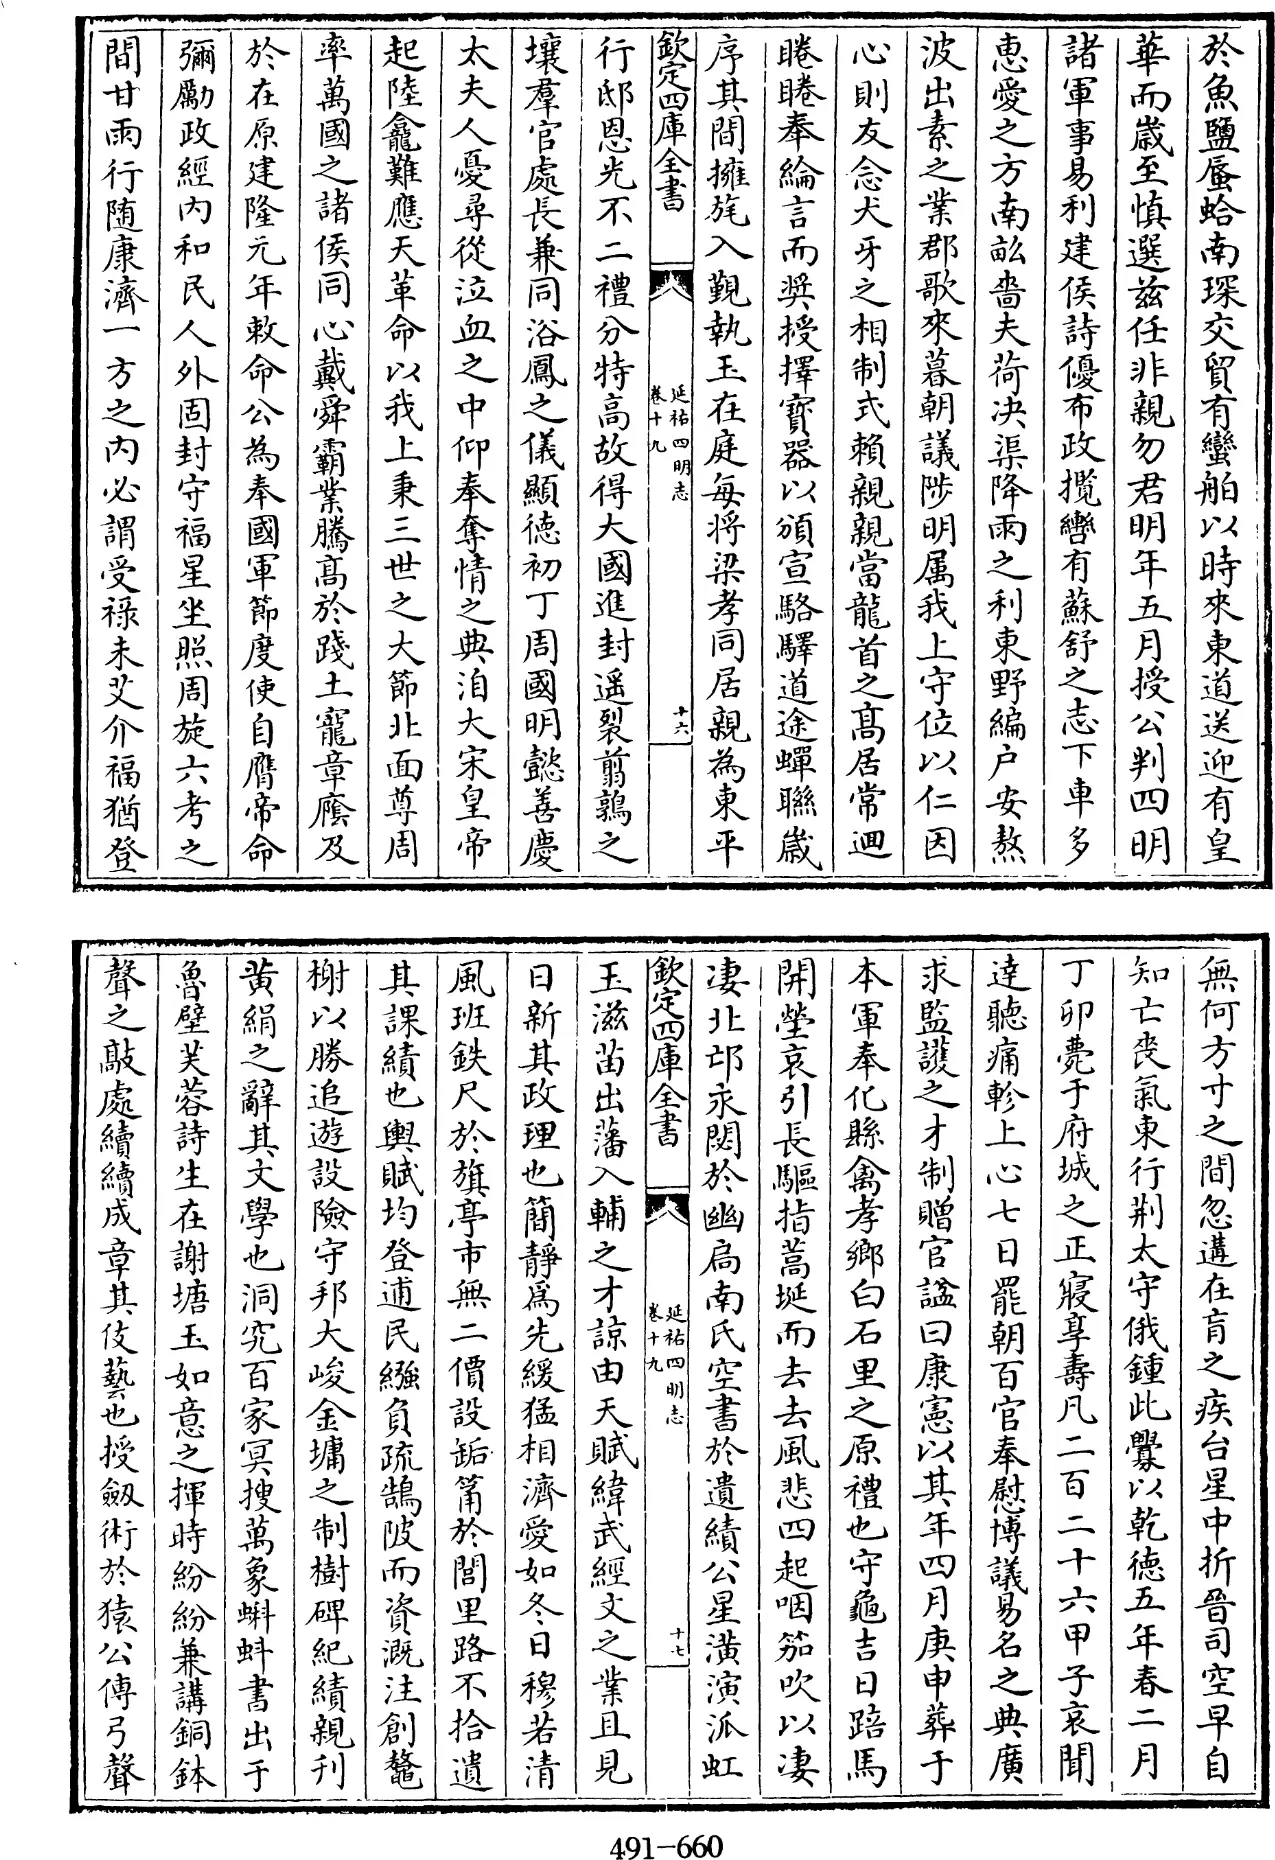 於魚鹽蜃蛤南琛交貿有蠻舶以時來東道送迎有皇
華而歲至慎選兹任非親勿君明年五月授公判四明
諸軍事易利建侯詩優布政攬轡有蘇舒之志下車多
惠愛之方南畝嗇夫荷决渠降雨之利東野編户安熬
波出素之業郡歌來暮朝議陟明属我上守位以仁因
心則友念犬牙之相制式賴親親當龍首之髙居常廻
睠睠奉綸言而奨授擇寳器以頒宣駱驛道途蟬聯歳
序其間擁旄入覲執玉在庭每將梁孝同居親為東平
欽定四庫全書
延祐四明志
卷十九
十六
行邸恩光不二禮分特高故得大國進封遥裂翦鶉之
壤羣官處長兼同浴鳳之儀顯德初丁周國明懿善慶
太夫人憂尋從泣血之中仰奉奪情之典洎大宋皇帝
起陸龕難應天革命以我上秉三世之大節北面尊周
率萬國之諸侯同心戴舜霸業騰髙於踐土寵章廕及
於在原建隆元年敕命公為奉國軍節度使自膺帝命
彌勵政經内和民人外固封守福星坐照周旋六考之
間甘雨行随康濟一方之内必謂受祿未艾介福猶登
無何方寸之間忽遘在肓之疾台星中折晉司空早自
知亡喪氣東行荆太守俄鍾此釁以乾德五年春二月
丁卯薨于府城之正寢享壽凡二百二十六甲子哀聞
逹聽痛軫上心七日罷朝百官奉慰博議易名之典廣
求監護之才制贈官諡曰康憲以其年四月庚申葬于
本軍奉化縣禽孝鄉白石里之原禮也守龜吉日踣馬
開塋哀引長驅指蒿埏而去去風悲四起咽笳吹以凄
凄北邙永閟於幽扃南氏空書於遺績公星潢演派虹
欽定四庫全書
延祐四明志
卷十九
十七
玉滋苗出藩入輔之才諒由天賦緯武經文之業且見
日新其政理也簡靜爲先緩猛相濟愛如冬日穆若清
風班鉄尺於旗亭市無二價設缿筩於閭里路不拾遺
其課績也輿賦均登逋民繈負疏鵠陂而資溉注創鼇
榭以勝追遊設險守邦大峻金墉之制樹碑紀績親刋
黄絹之辭其文學也洞究百家冥搜萬象蝌蚪書出于
魯壁芙蓉詩生在謝塘玉如意之揮時紛紛兼講銅鉢
聲之敲處續續成章其伎藝也授劔術於猿公傳弓聲
491-660